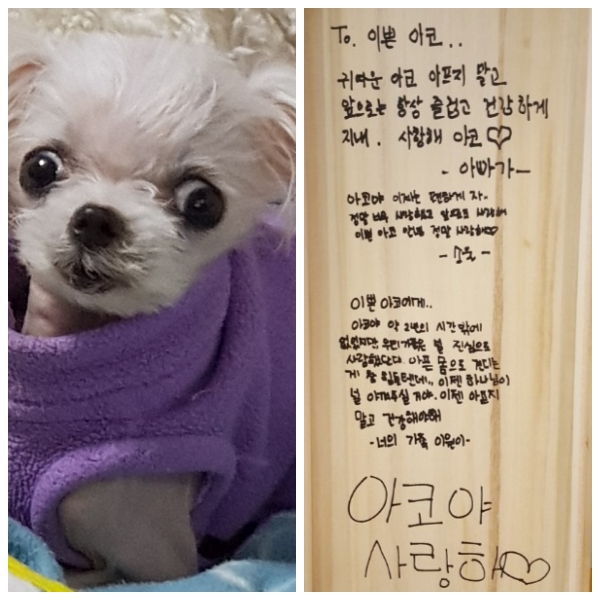 To. 이쁜 아코..
귀여운 아코 아프지 말고
앞으로는 항상 즐겁고 건강하게
지내. 사랑해 아코♡
- 아빠가 -
아코야 이제는 편하게 자..
정말 너무 사랑했고 앞으로도 사랑해
이쁜 아코 안녕 정말 사랑해♡
이쁜 아코에게..
아코야 약 2년의 시간밖에
없었지만, 우리가족은 널 진심으로
사랑했단다. 아픈 몸으로 견디는
게 참 힘들텐데.. 이젠 하나님이
널 아껴주실거야. 이젠 아프지
말고 건강해야해
-너의 가족 이원이-
아코야
사랑해♡